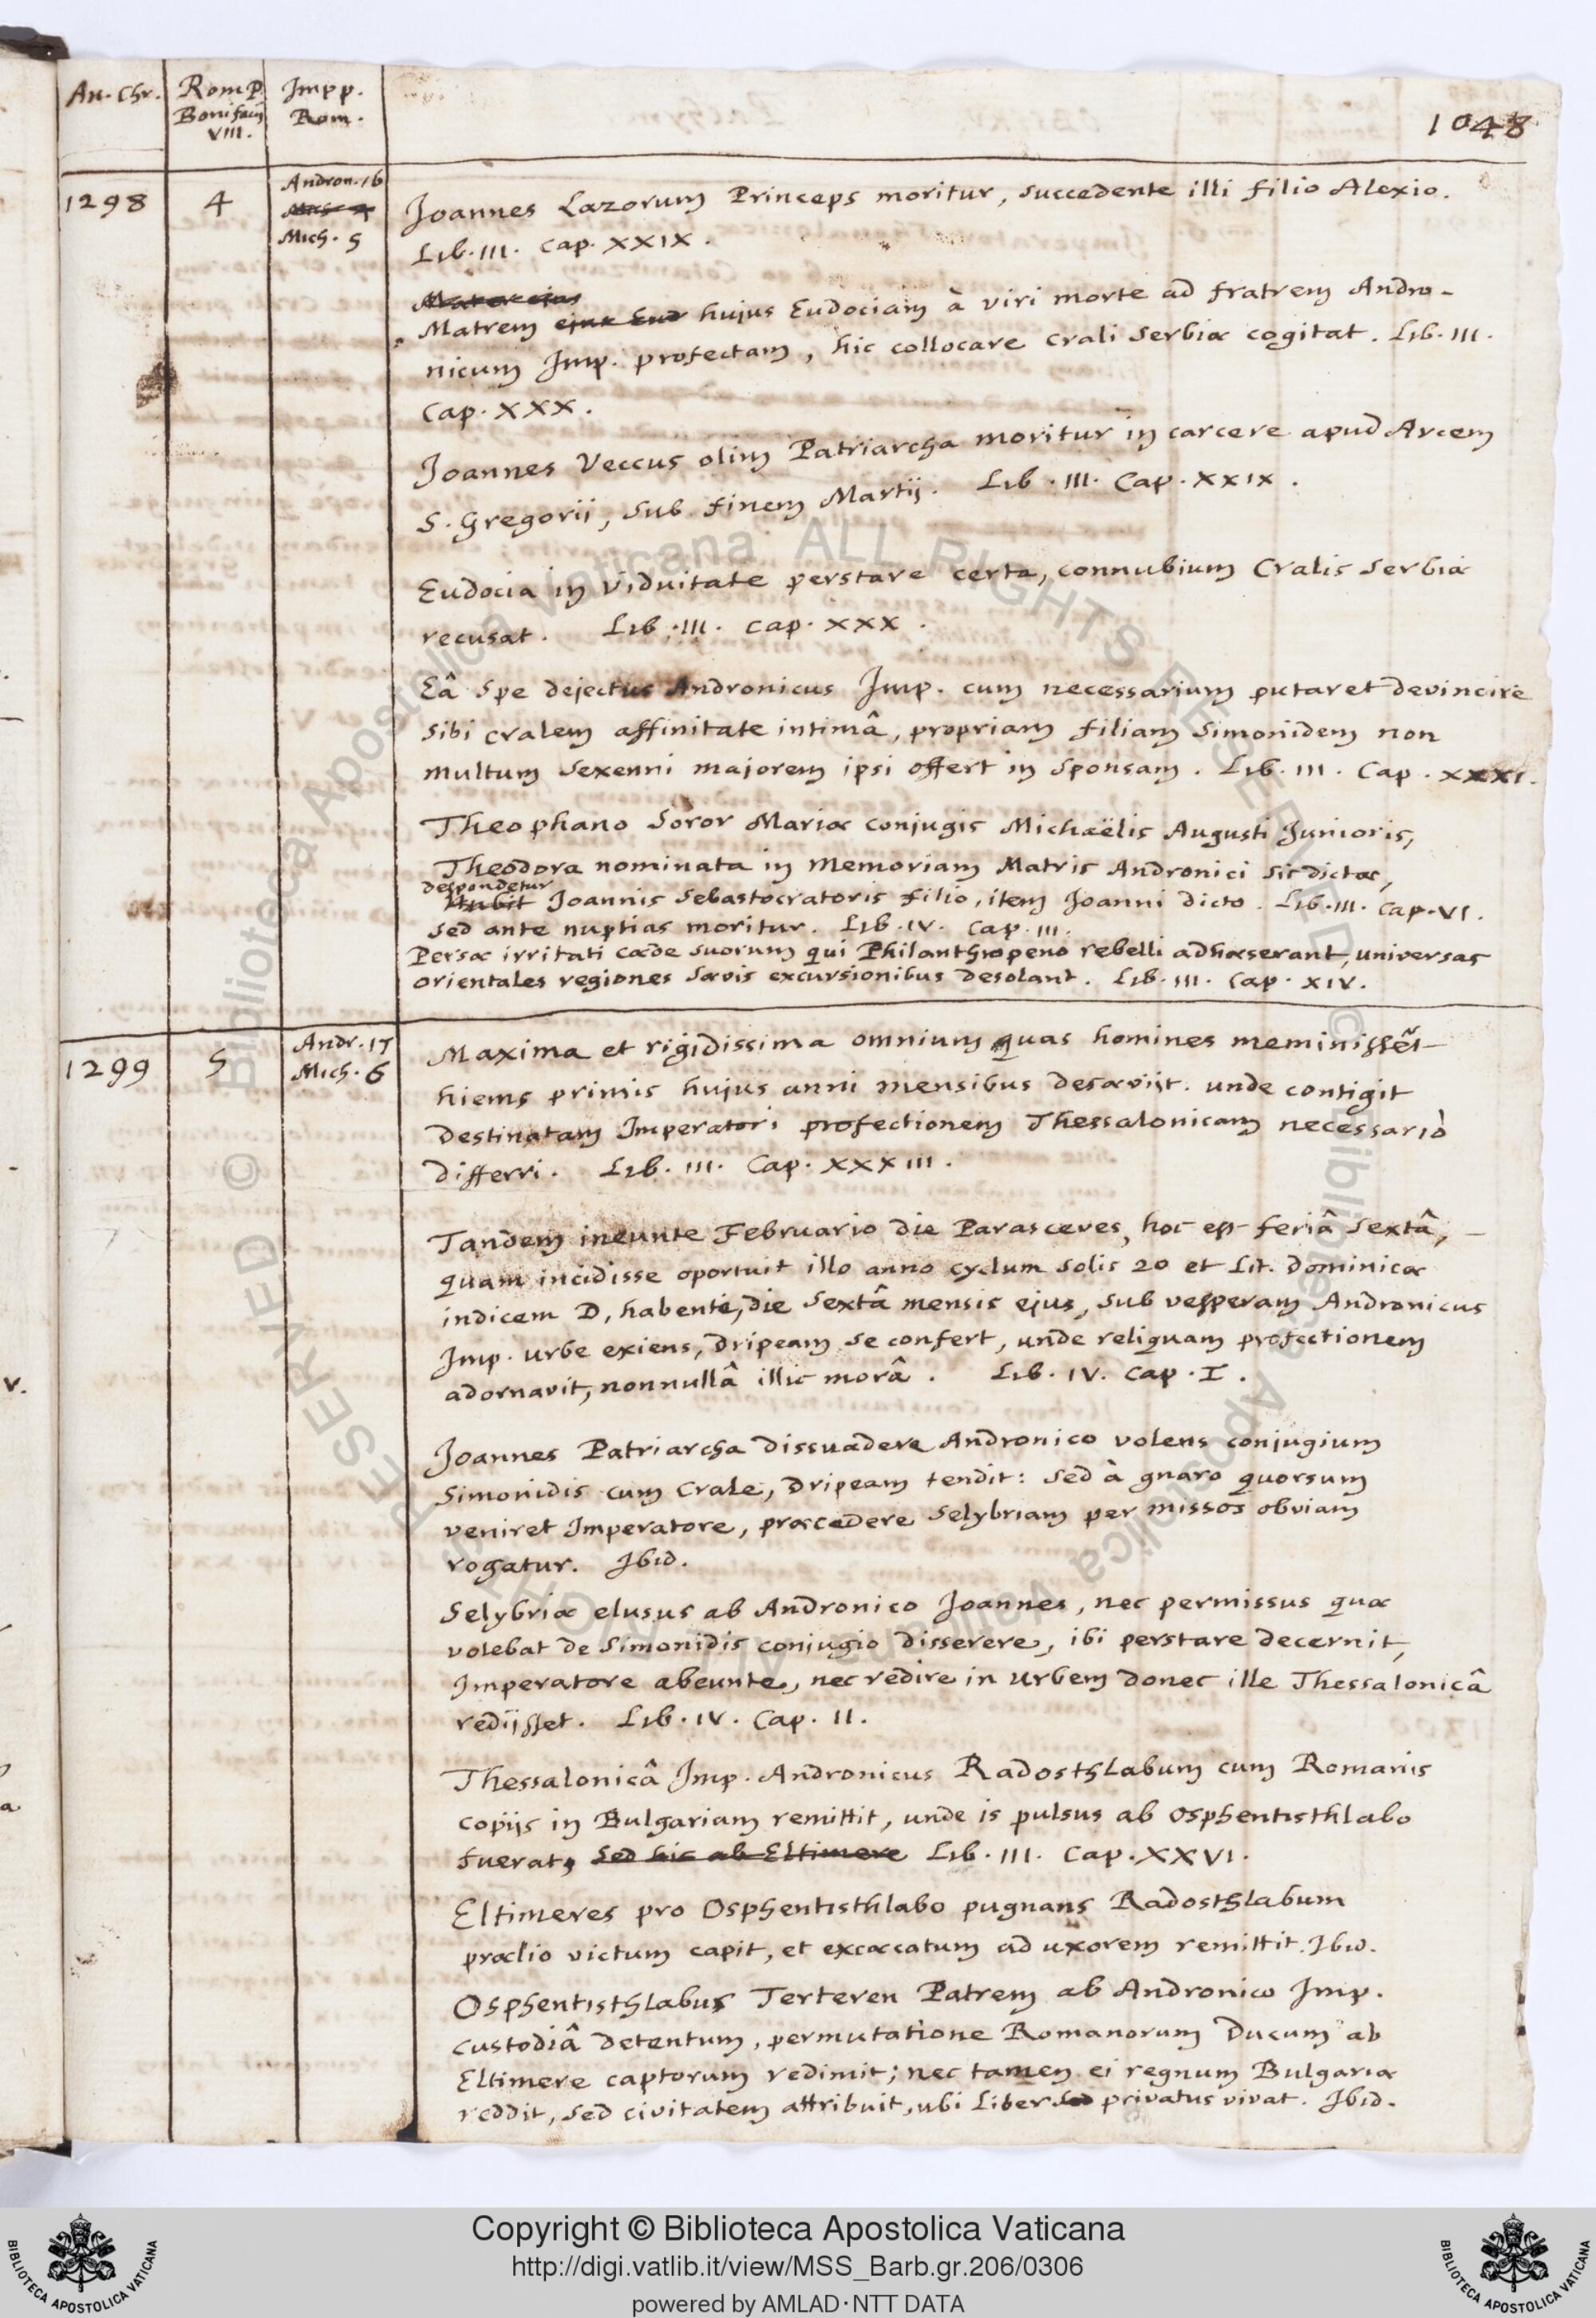 An. Chr. Rom. P. Bonifacij VIII. Impp. Rom.
1048
1298 4 Andron. 16
Mich. 5
Joannes Lazorum Princeps moritur, succedente illi filio Alexio.
Lib. III. Cap. XXIX.
Mater ejus
Matrem ejus Eud hujus Eudociam à viri morte ad fratrem Andro-
nicum Imp. profectam, hic collocare Crali Serbiæ cogitat. Lib. III.
Cap. XXX.
Joannes Veccus olim Patriarcha moritur in carcere apud Arcem
S. Gregorii, sub finem Martij. Lib. III. Cap. XXIX.
Eudocia in viduitate perstare certa, connubium Cralis Serbiæ
recusat. Lib. III. Cap. XXX.
Eâ spe dejectus Andronicus Imp. cum necessarium putaret devincire
sibi Cralem affinitate intimâ, propriam filiam Simonidem non
multum sexenni majorem ipsi offert in sponsam. Lib. III. Cap. XXXI.
Theophano soror Mariæ conjugis Michaëlis Augusti Junioris,
Theodora nominata in memoriam Matris Andronici sic dictæ,
despondetur
Nubit Joannis Sebastocratoris filio, item Joanni dicto. Lib. III. Cap. VI.
sed ante nuptias moritur. Lib. IV. Cap. III.
Persæ irritati cæde suorum qui Philanthropeno rebelli adhæserant, universas
orientales regiones sævis excursionibus desolant. Lib. III. Cap. XIV.
1299 5 Andr. 17
Mich. 6
Maxima et rigidissima omnium quas homines meminissēt
hiems primis hujus anni mensibus desæviit. unde contigit
destinatam Imperatori profectionem Thessalonicam necessariò
differri. Lib. III. Cap. XXXIII.
Tandem ineunte Februario die Parasceves, hoc est feriâ sextâ,
quam incidisse oportuit illo anno cyclum solis 20 et Lit. Dominicæ
indicem D, habente, die sextâ mensis ejus, sub vesperam Andronicus
Imp. urbe exiens, Dripeam se confert, unde reliquam profectionem
adornavit, nonnullâ illic morâ. Lib. IV. Cap. I.
Joannes Patriarcha dissuadere Andronico volens conjugium
Simonidis cum Crale, Dripeam tendit: sed à gnaro quorsum
veniret Imperatore, præcedere Selybriam per missos obviam
rogatur. Ibid.
Selybriæ elusus ab Andronico Joannes, nec permissus quæ
volebat de Simonidis conjugio disserere, ibi perstare decernit,
Imperatore abeunte, nec redire in Urbem donec ille Thessalonicâ
redijsset. Lib. IV. Cap. II.
Thessalonicâ Imp. Andronicus Radosthlabum cum Romanis
copijs in Bulgariam remittit, unde is pulsus ab Osphentisthlabo
fuerat, sed hic ab Eltimere Lib. III. Cap. XXVI.
Eltimeres pro Osphentisthlabo pugnans Radosthlabum
prælio victum capit, et excæcatum ad uxorem remittit. Ibid.
Osphentisthlabus Terteren Patrem ab Andronico Imp.
custodiâ detentum, permutatione Romanorum Ducum ab
Eltimere captorum redimit; nec tamen ei regnum Bulgariæ
reddit, sed civitatem attribuit, ubi liber sed privatus vivat. Ibid.
v.
a
© Biblioteca Apostolica Vaticana ALL RIGHTS RESERVED
© Biblioteca Apostolica Vaticana ALL RIGHTS RESERVED
Copyright © Biblioteca Apostolica Vaticana
http://digi.vatlib.it/view/MSS_Barb.gr.206/0306
powered by AMLAD·NTT DATA
BIBLIOTECA APOSTOLICA VATICANA
BIBLIOTECA APOSTOLICA VATICANA